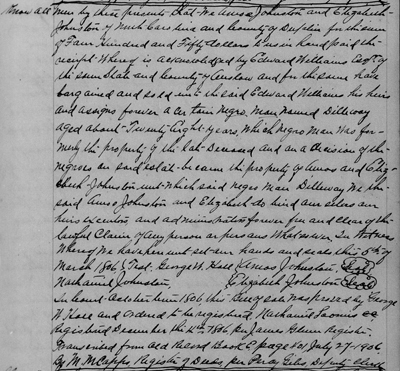 Know all men by these presents that We Amos Johnston and Elizabeth
Johnston of North Carolina and County of Duplin for the sum
of Four Hundred and Fifty dollars to us in hand paid the
receipt Whereof is acknowledged by Edward Williams Esqr. of
the same State and County of Onslow and for the same have
bargained and sold unto the said Edward Williams his heirs
and assigns forever a Certain Negro Man Named Dilliway
aged about Twenty Eight years, Which Negro Man Was for-
merly the property of the late Deceased and on a Division of the
negroes on said estate became the property of Amos and Eliz-
abeth Johnston unto Which said negro Man Dilliway We the
said Amos Johnston and Elizabeth do bind our selves our
heirs executors and administrators forever free and clear of the
lawful Claim of any person or persons Whatsoever. In Witness
Whereof We have hereunto set our hands and seals this 8th of
March 1806. Test. George W. Hall Amos Johnston, Seal
Nathaniel Johnston, Elizabeth Johnston Seal
In court October term 1806 this Bill of sale Was proved by George
W. Hall and Ordered to be registered. Nathaniel Loomis CC
Registered December the 4th 1806 per James Glenn Register.
Transcribed from Old Record Book page 801 July 27-1906
By M. McCapps Register of Deeds, per Percy Giles Deputy Clerk